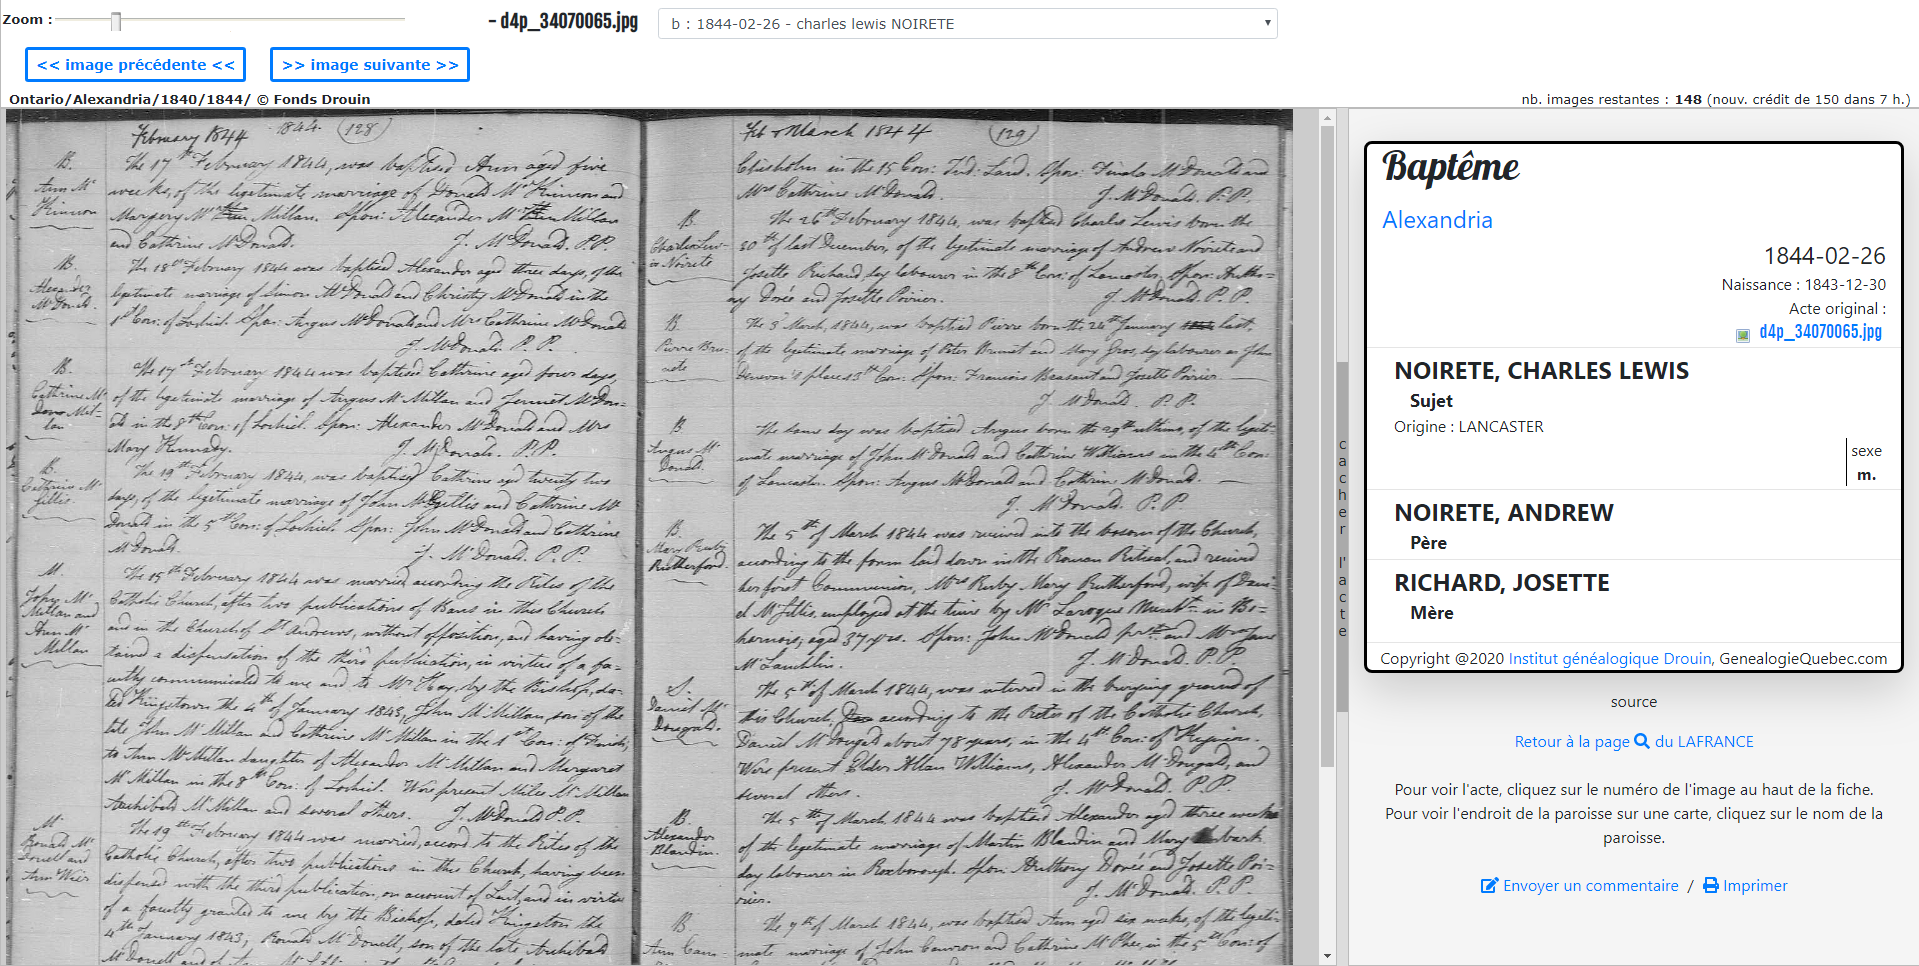 Zoom :
- d4p_34070065.jpg
b : 1844-02-26 - charles lewis NOIRETE
<< image précédente <<
>> image suivante >>
Ontario/Alexandria/1840/1844/ © Fonds Drouin
nb. images restantes : 148 (nouv. crédit de 150 dans 7 h.)
February 1844 1844 (128)
B.
Ann Mc
Kinnon
The 17th February 1844, was baptised Ann aged five
weeks, of the legitimate marriage of Donald McKinnon and
Margery Mc Millan. Spon: Alexander Mc Millan
and Cathrine McDonald. J. McDonald. P.P.
B.
Alexander
McDonald.
The 18th February 1844 was baptised Alexander aged three days, of the
legitimate marriage of Simon McDonald and Christy McDonald in the
1st Con: of Lochiel. Spon: Angus McDonald and Mrs Cathrine McDonald
J. McDonald P.P.
B.
Cathrine Mc
Millan
The 17th February 1844 was baptised Cathrine aged four days,
of the legitimate marriage of Angus McMillan and Jennet McDon-
ald in the 8th Con: of Lochiel. Spon: Alexander McDonald and Mrs
Mary Kennedy. J. McDonald. P.P.
B.
Cathrine Mc
Gillis.
The 19th February 1844, was baptised Cathrine aged twenty two
days, of the legitimate marriage of John McGillis and Cathrine Mc
Donald in the 5th Con: of Lochiel. Spon: John McDonald and Cathrine
McDonald. J. McDonald. P.P.
M.
John Mc
Millan and
Ann Mc
Millan
The 15th February 1844 was married according the Rites of the
Catholic Church, after two publications of Bans in this Church
and in the Church of St Andrews, without opposition, and having ob-
tained a dispensation of the third publication, in virtue of a fa-
culty communicated to me and to Mr Hay, by the Bishop, da-
ted Kingston the 4th of January 1843, John McMillan, son of the
late John McMillan and Cathrine McMillan in the 1st Con: of
to Ann McMillan daughter of Alexander McMillan and Margaret
McMillan in the 8th Con: of Lochiel. Were present Miles McMillan
Archibald McMillan and several others. J. McDonald P.P.
M.
Ronald Mc
Donell and
Ann Weir
The 19th February 1844 was married, accord to the Rites of the
Catholic Church, after two publications in this Church, having been
dispensed with the third publication, on account of Lent, and in virtue
of a faculty granted to me by the Bishop, dated Kingston the
4th January 1843, Ronald McDonell, son of the late Archibald
McDonell and of
Feb & March 1844 (129)
Chisholm in the 15 Con: Ind: Land. Spon: Finla McDonald and
Mrs Cathrine McDonald. J. McDonald. P.P.
B
Charles Lew-
is Noirete
The 26th February 1844, was baptised Charles Lewis born the
30th of last December, of the legitimate marriage of Andrew Noirete and
Josette Richard, day labourer in the 8th Con: of Lancaster. Spon: Antho-
ny Dorée and Josette Poirier. J. McDonald. P.P.
B.
Pierre Bru-
note
The 3d March, 1844, was baptised Pierre born the 24th January last,
of the legitimate marriage of Peter Brunot and Mary Gros, day labourer in John
place 13th Con: Spon: Francois and Josette Poirier.
J. McDonald. P.P.
B
Angus Mc
Donald.
The same day was baptised Angus born the 29th ultimo, of the legiti-
mate marriage of John McDonald and Cathrine Williams in the 4th Con:
of Lancaster. Spon: Angus McDonald and Cathrine McDonald.
J. McDonald. P.P.
B.
Mary Ruby
Rutherford.
The 5th of March 1844 was received into the bosom of the Church,
according to the form laid down in the Roman Ritual, and received
her first Communion, Mrs Ruby Mary Rutherford, wife of Dani-
el McGillis, employed at the time by Mr Laroque in Be-
harnois; aged 37 yrs. Spon: John McDonald and Mrs Jane
McLauchlin. J. McDonald. P.P.
S.
Daniel Mc
Dougald.
The 5th of March 1844, was interred in the burying ground of
this Church, according to the Rites of the Catholic Church,
Daniel McDougald about 78 years, in the 4th Con: of Kenyon.
Were present Elder Allan Williams, Alexander McDougald, and
several others. J. McDonald. P.P.
B.
Alexander
Blandin.
The 5th of March 1844 was baptised Alexander aged three weeks
of the legitimate marriage of Martin Blandin and Mary
day labourer in Roxborough. Spon: Anthony Dorée and Josette Poi-
rier. J. McDonald. P.P.
B
Ann Cam
The 7th of March 1844, was baptised Ann aged six weeks, of the legiti-
mate marriage of John Cameron and Cathrine McPhee, in the 5th Con: of
cacher l'acte
Baptême
Alexandria
1844-02-26
Naissance : 1843-12-30
Acte original :
d4p_34070065.jpg
NOIRETE, CHARLES LEWIS
Sujet
Origine : LANCASTER
sexe
m.
NOIRETE, ANDREW
Père
RICHARD, JOSETTE
Mère
Copyright @2020 Institut généalogique Drouin, GenealogieQuebec.com
source
Retour à la page du LAFRANCE
Pour voir l'acte, cliquez sur le numéro de l'image au haut de la fiche.
Pour voir l'endroit de la paroisse sur une carte, cliquez sur le nom de la
paroisse.
Envoyer un commentaire / Imprimer